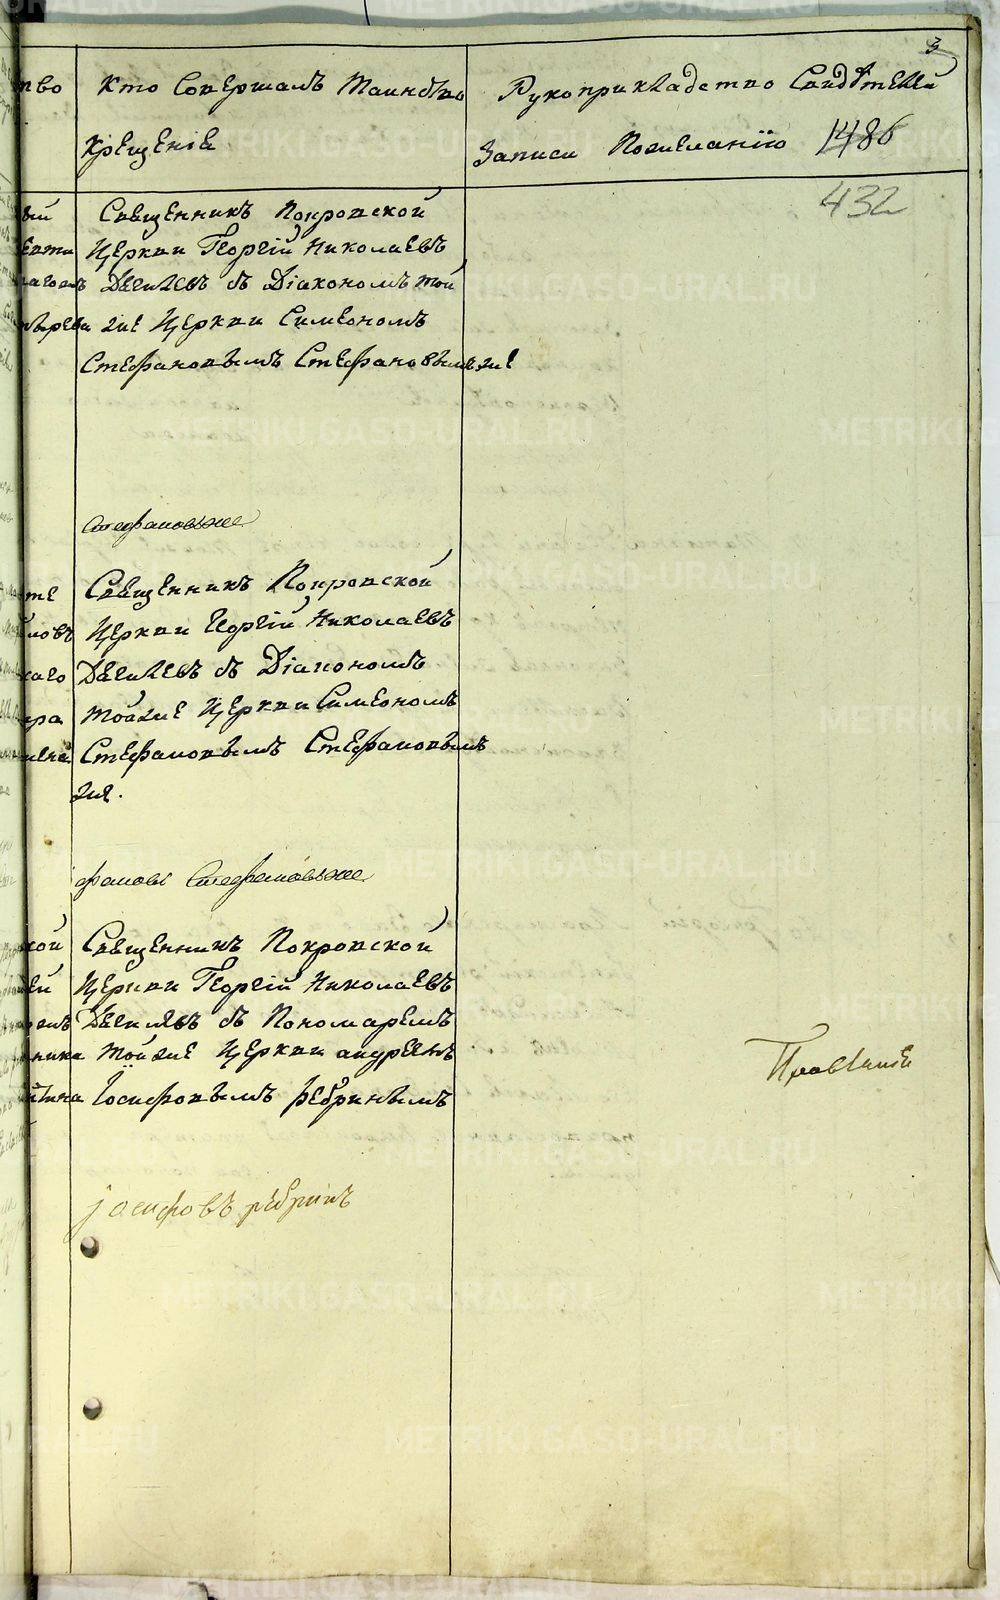 3
тво Кто Совершалъ Таинство
Крещеніе
Рукоприкладство Свидѣтелей
Записи Пожеланію 1486
432
Священникъ Покровской
Церкви Георгій Николаевъ
съ Діакономъ той
же Церкви Симеономъ
Стефановымъ Стефановымъ же
Стефановымъ же
Священникъ Покровской
Церкви Георгій Николаевъ
съ Діакономъ
тойже Церкви Симеономъ
Стефановымъ Стефановымъ
же.
Стефановымъ же
кой Священникъ Покровской
ей Церкви Георгій Николаевъ
съ Пономаремъ
ника тойже Церкви андреемъ
Іосифовымъ рѣбринымъ
іосифовъ рѣбринъ
METRIKI.GASO-URAL.RU